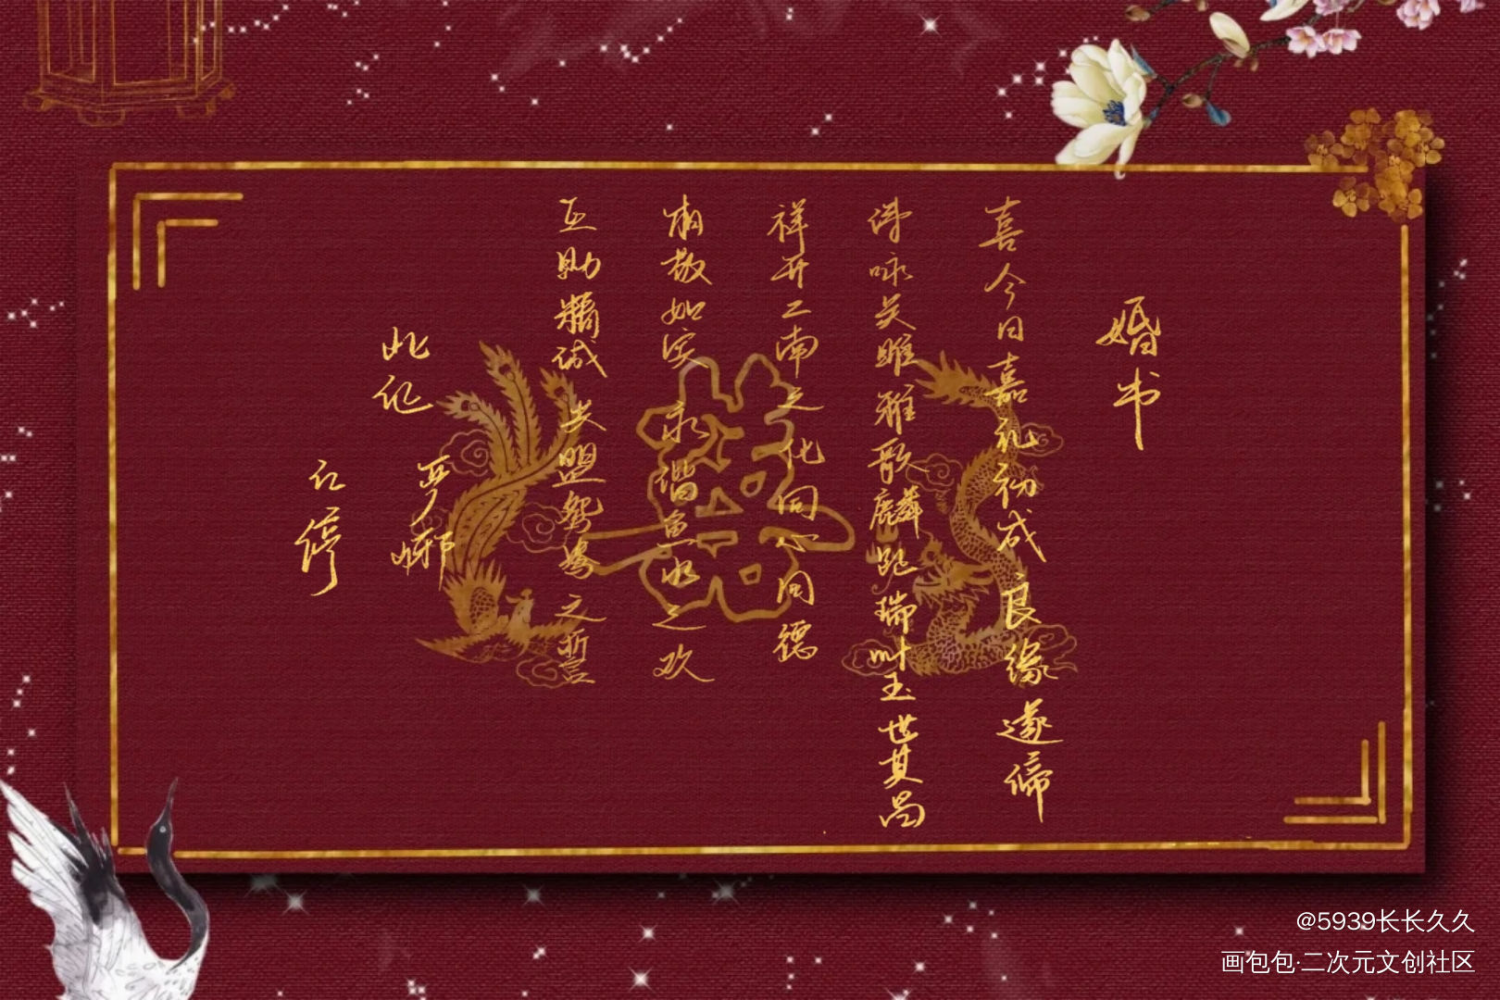 婚书
喜今日嘉礼初成 良缘遂缔
诗咏关雎 雅歌麟趾 瑞叶五世其昌
祥开二南之化 同心同德
宜敬如宾 永谐鱼水之欢
互助精诚 共盟鸳鸯之誓
此化
亚娜
仁停
@5939长长久久
画包包·二次元文创社区